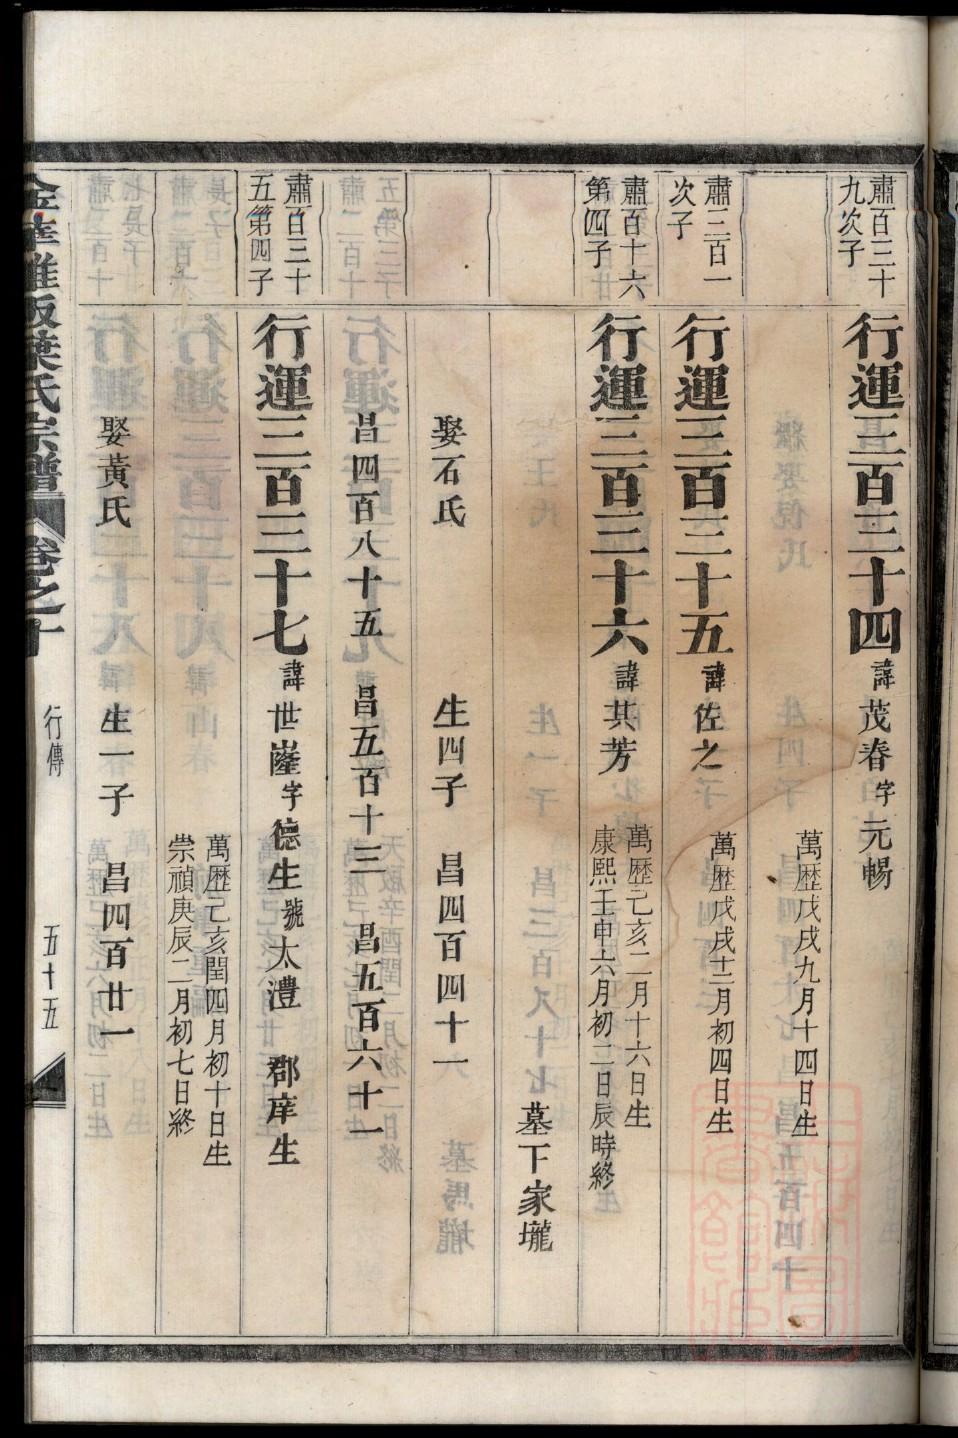 肅百三十
九次子
行運三百三十四 諱茂春 字元暢
萬歷戊戌九月十四日生
肅二百一
次子
行運三百三十五 諱佐之
萬歷戊戌十二月初四日生
肅百十六
第四子
行運三百三十六 諱其芳
萬歷己亥二月十六日生
康熙壬申六月初二日辰時終
墓下家壠
娶石氏 生四子 昌四百四十一
昌四百八十五 昌五百十三 昌五百六十一
肅百三十
五第四子
行運三百三十七 諱世㟭 字德生 號太澧 郡庠生
萬歷己亥閏四月初十日生
崇禎庚辰二月初七日終
娶黃氏 生一子 昌四百廿一
葉氏宗譜 卷之十 行傳 五十五